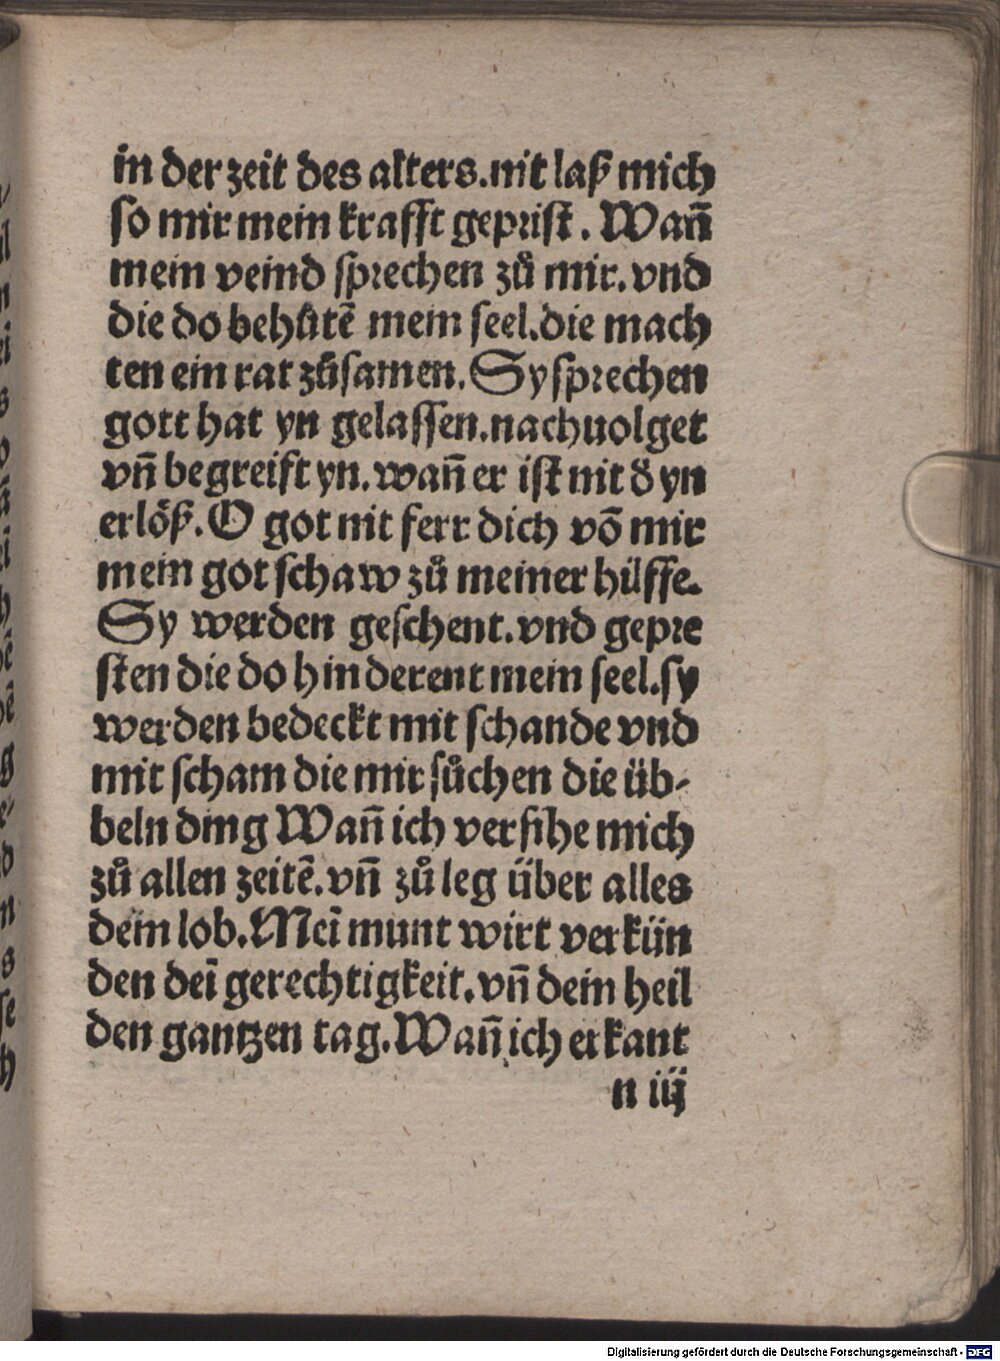 in der zeit des alters.nit laß mich
so mir mein krafft geprist. Wañ
mein veind sprechen zů mir.vnd
die do behůtē mein seel.die mach
ten ein rat zůsamen. Sy sprechen
gott hat yn gelassen.nachuolget
vñ begreift yn.wañ er ist nit d̕ yn
erlöß. O got nit ferr dich vō mir
mein got schaw zů meiner hülffe.
Sy werden geschent.vnd gepre
sten die do hinderent mein seel.sy
werden bedeckt mit schande vnd
mit scham die mir sůchen die üb-
beln ding Wañ ich versihe mich
zů allen zeitē.vñ zů leg über alles
dein lob. Meī munt wirt verkün
den deī gerechtigkeit.vñ dein heil
den gantzen tag. Wañ ich erkant
n iij
Digitalisierung gefördert durch die Deutsche Forschungsgemeinschaft - DFG